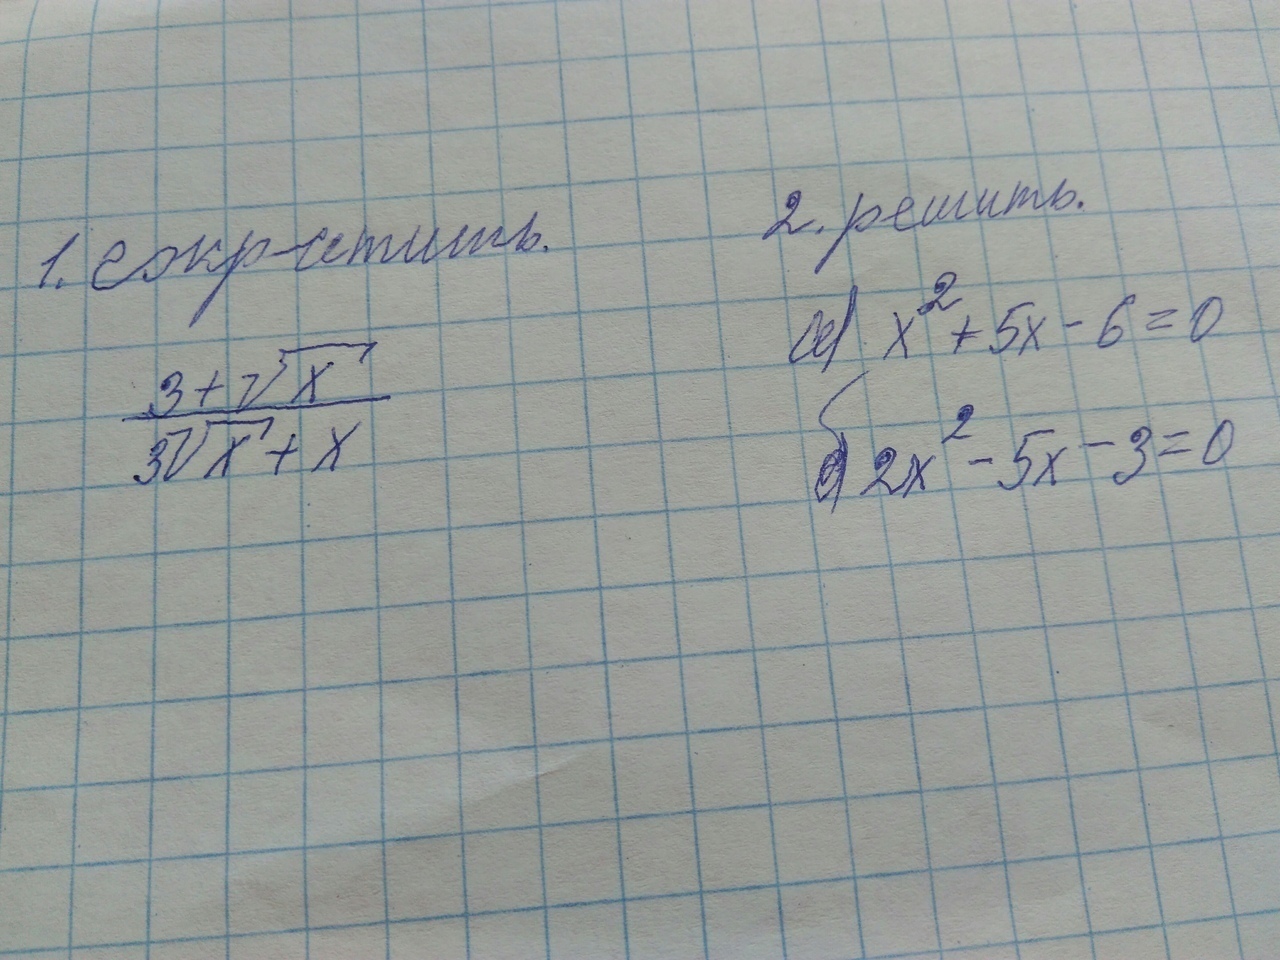 1. сократить.
3+√x
3√x+x
2. решить.
а) x²+5x-6=0
б) 2x²-5x-3=0